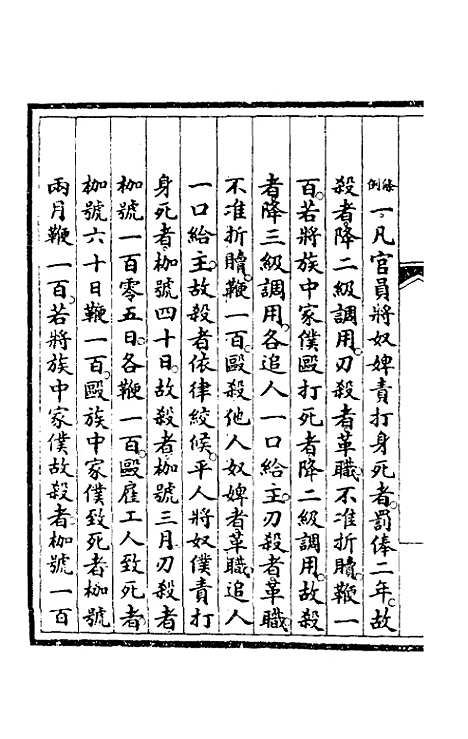 條例一凡官員將奴婢責打身死者罰俸二年故
殺者降二級調用刃殺者革職不准折贖鞭一
百若將族中家僕毆打死者降二級調用故殺
者降三級調用各追人一口給主刃殺者革職
不准折贖鞭一百毆殺他人奴婢者革職追人
一口給主故殺者依律絞候平人將奴僕責打
身死者枷號四十日故殺者枷號三月刃殺者
枷號一百零五日各鞭一百毆雇工人致死者
枷號六十日鞭一百毆族中家僕致死者枷號
兩月鞭一百若將族中家僕故殺者枷號一百